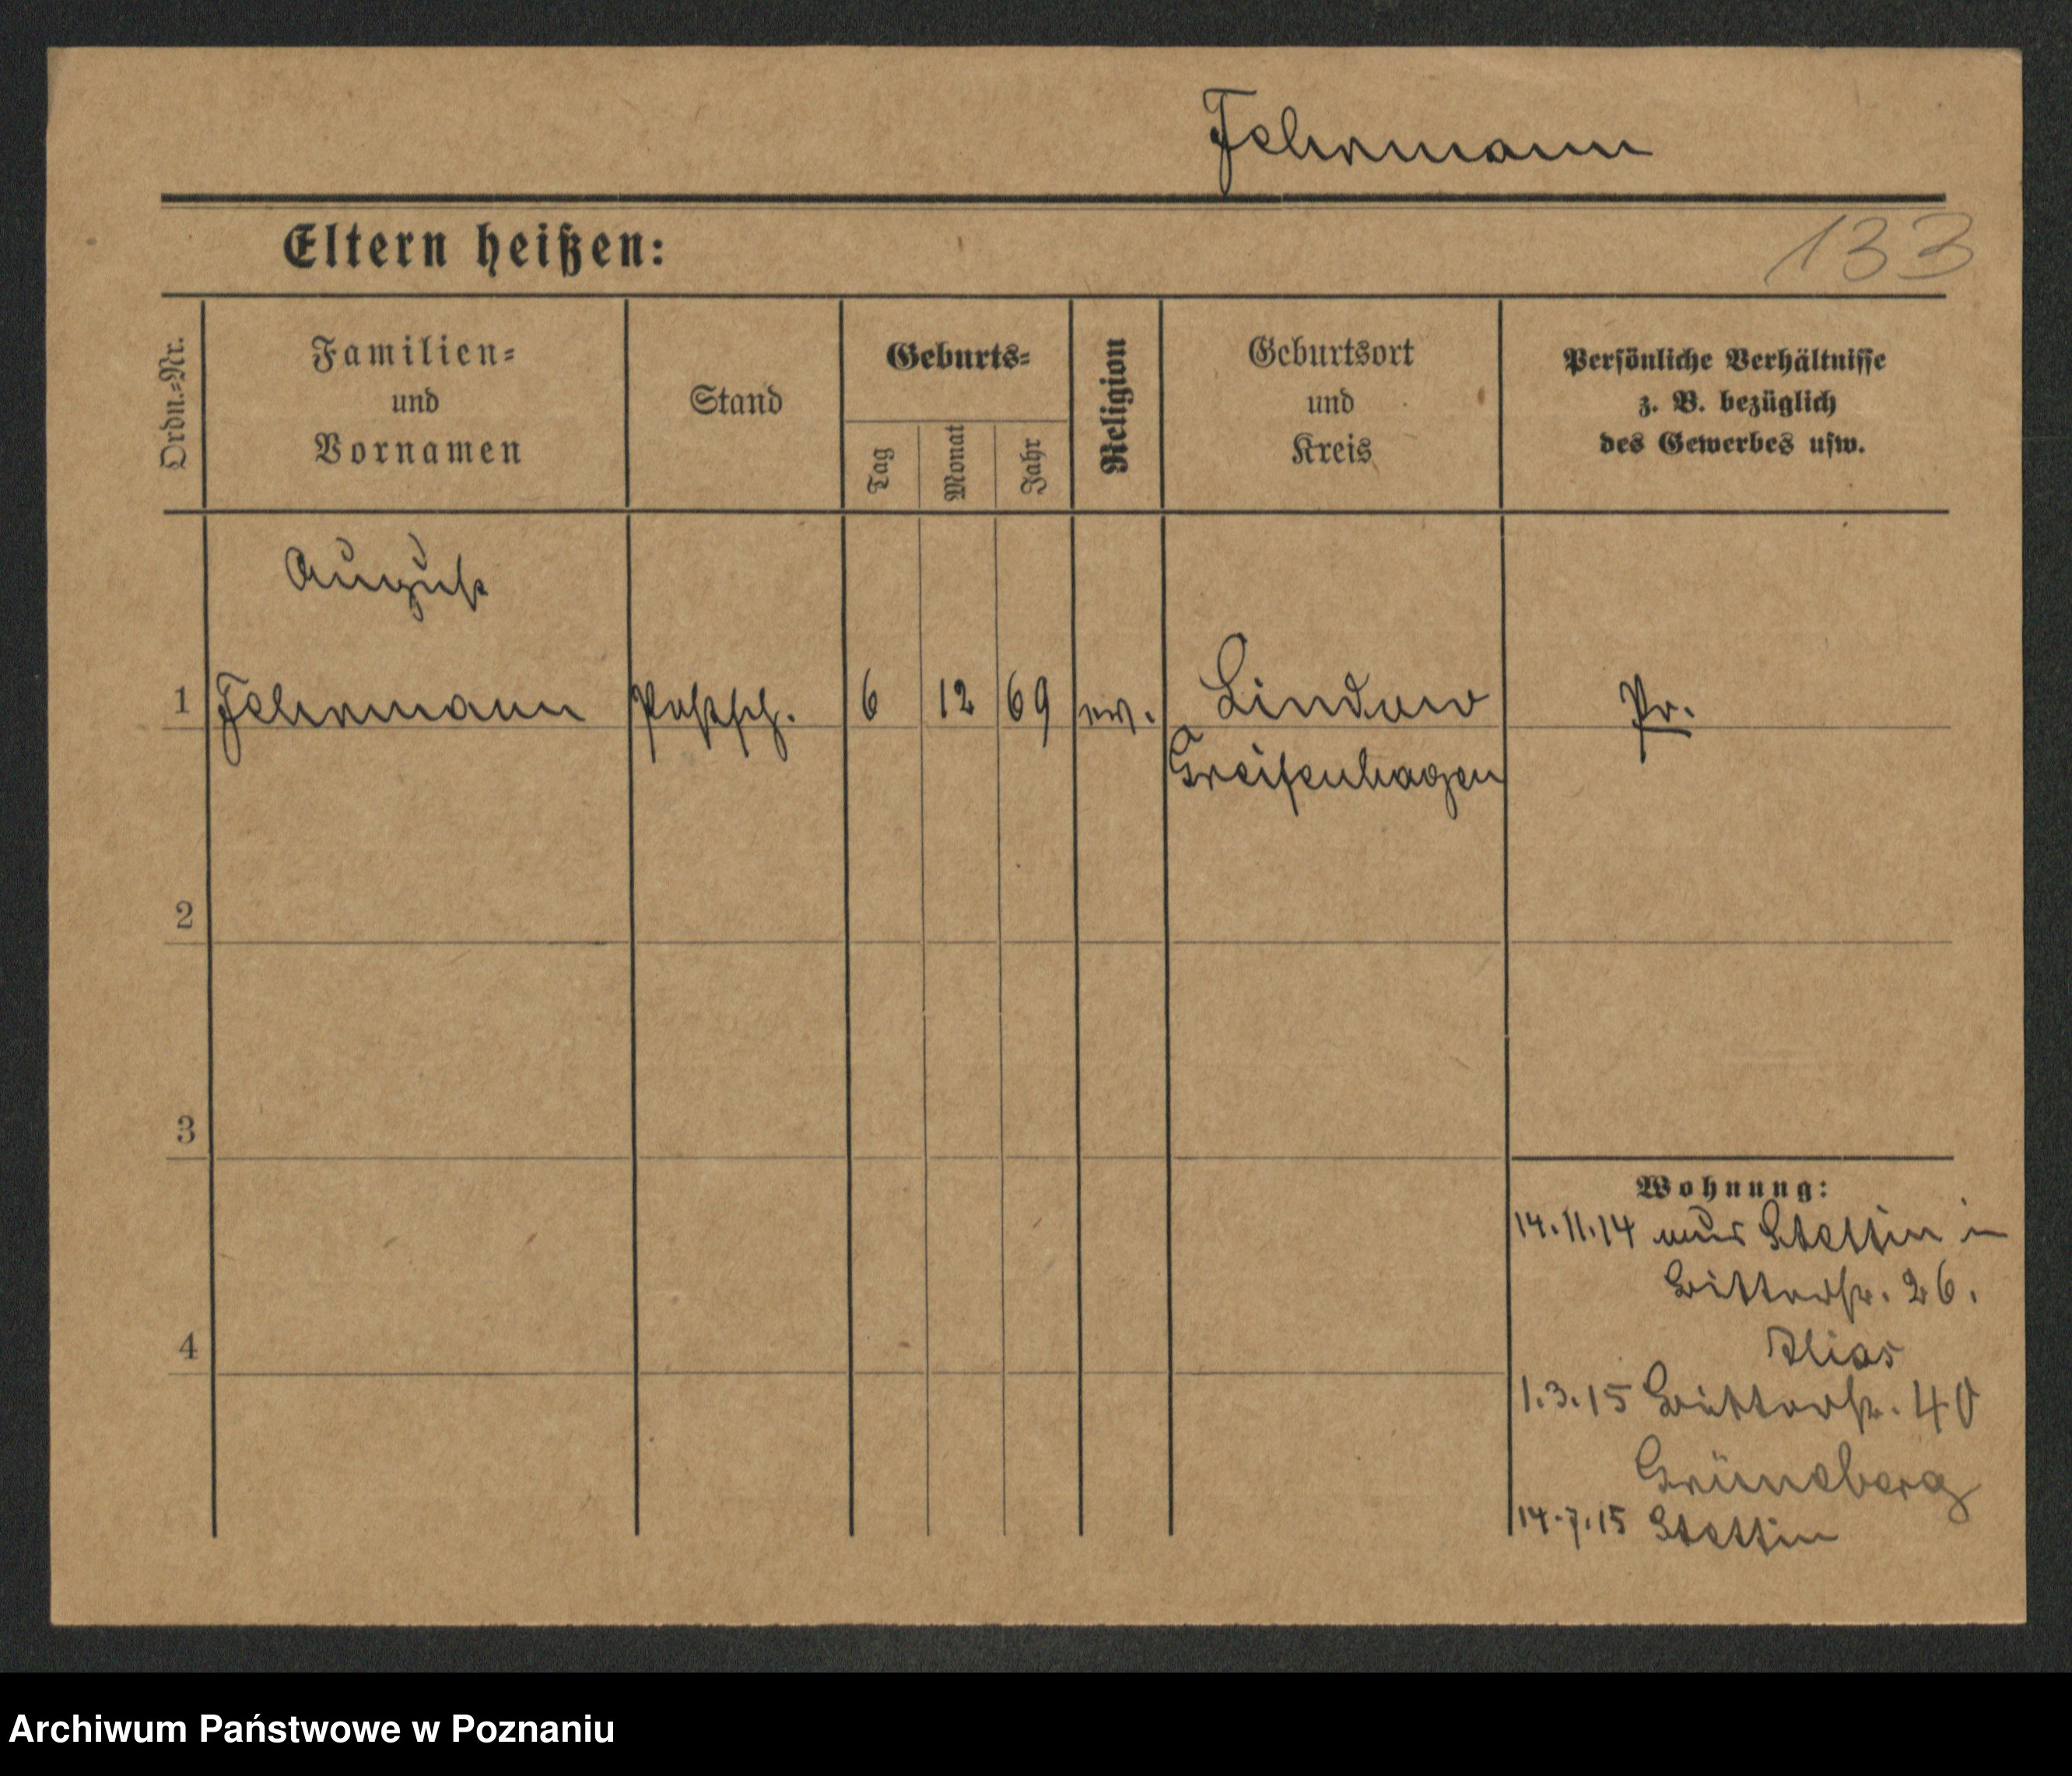 Fehrmann
Eltern heißen:
133
Ordn.=Nr.
Familien=
und
Vornamen
Stand
Geburts=
Tag
Monat
Jahr
Religion
Geburtsort
und
Kreis
Persönliche Verhältnisse
z. B. bezüglich
des Gewerbes usw.
August
1 Fehrmann Postsch. 6 12 69 ev. Lindow Pr.
Greifenhagen
2
3
4
Wohnung:
14.11.14 aus Stettin in
26.
1.3.15 40
Grüneberg
14.7.15 Stettin
Archiwum Państwowe w Poznaniu